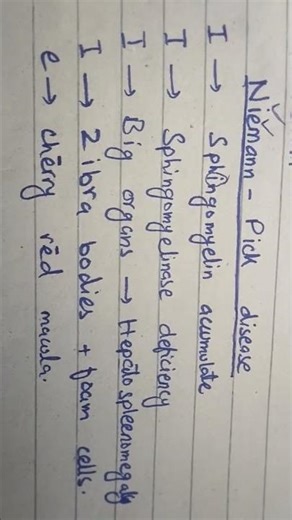 Niemann - Pick disease
I → Sphingomyelin accumulate
I → Sphingomyelinase deficiency
I → Big organs → Hepatospleenomegaly
I → Zibra bodies + foam cells.
e → cherry red macula.